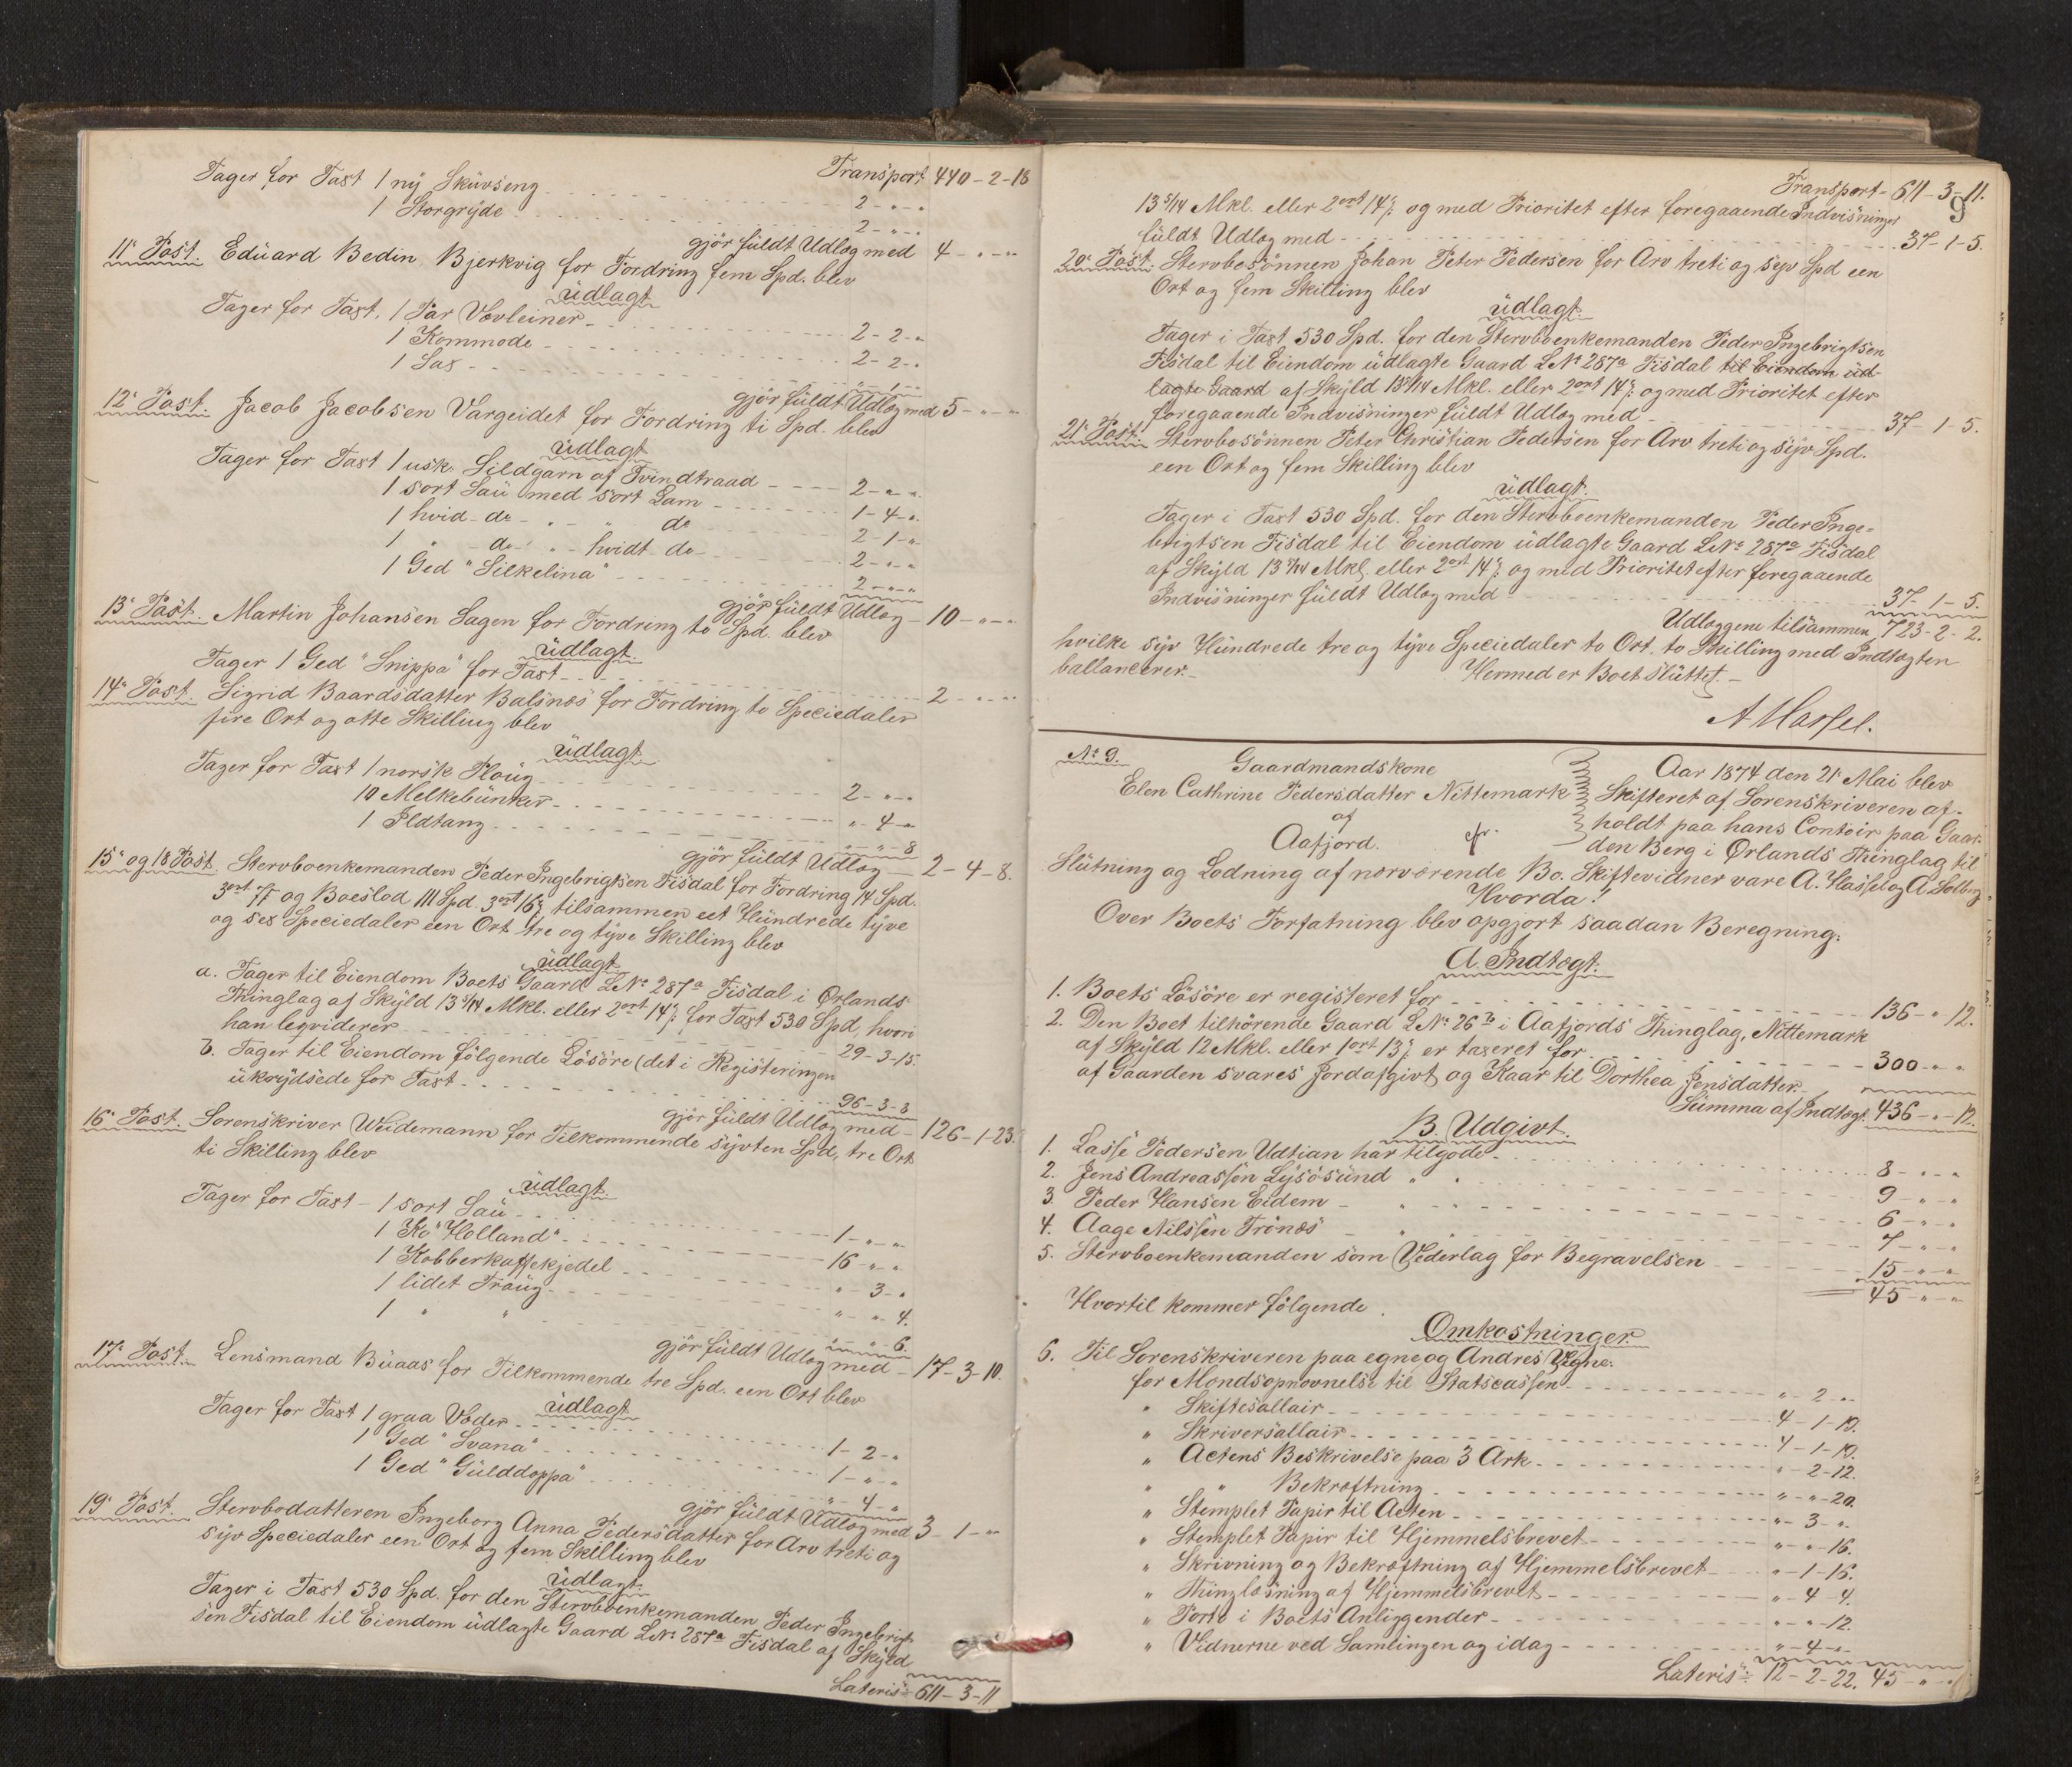 Transport 440-2-18
Tager for Taxt 1 ny Skuvseng 2-"-"
1 Storgryde 2-"-"
gjør fuldt Udlog med 4-"-"
11' Post. Eduard Bedin Bjerkvig for Fordring fem Spd. blev
udlagt
Tager for Taxt, 1 Par Vævleiner 2-2-"
1 Kommode 2-2-"
1 Sax "-1-"
gjør fuldt Udlog med 5-"-"
12' Post. Jacob Jacobsen Vargeidet for Fordring ti Spd. blev
udlagt
Tager for Taxt 1 usk. Sildgarn af Tvindtraad 2-"-"
1 sort Sau med sort Lam 1-4-"
1 hvid do " " do 2-1-"
1 " do " hvidt do 2-"-"
1 Ged "Silkelina" 2-"-"
gjør fuldt Udlæg 10-"-"
13' Post. Martin Johansen Sagen for Fordring to Spd. blev
udlagt.
Tager 1 Ged "Snippa" for Taxt 2-"-"
14' Post. Sigrid Baardsdatter Balsnæs for Fordring to Speciedaler
fire Ort og otte Skilling blev
udlagt.
Tager for Taxt 1 norsk Ploug 2-"-"
10 Melkebunker "-4-"
1 Ildtang "-"-8
gjør fuldt Udlæg 2-4-8.
15' og 18 Post. Stervboenkemanden Peder Ingebrigtsen Fisdal for Fordring 14 Spd.
3 ort 7ß og Boeslod 111 Spd. 3 ort 16ß tilsammen eet Hundrede tyve
og sex Speciedaler een Ort tre og tyve Skilling blev
udlagt
a. Tager til Eiendom Boets Gaard LNo 287a Fisdal i Ørlands
Thinglag af Skyld 13 5/14 Mkl. eller 2 ort 14ß for Taxt 530 Spd, hvori
han leqviderer 29-3-15.
b. Tager til Eiendom følgende Løsøre (det i Registeringen
ukrydsede for Taxt 96-3-8
gjør fuldt Udlog med 126-1-23.
16' Post. Sorenskriver Weidemann for Tilkommende sytten Spd, tre Ort
ti Skilling blev
udlagt.
Tager for Taxt - 1 sort Sau 1-"-"
1 Ko "Holland" 16-"-"
1 Kobberkaffekjedel "-3-"
1 lidet Traug "-"-4.
1 " " "-"-6.
gjør fuldt Udlog med 17-3-10.
17' Post. Lensmand Buaas for Tilkommende tre Spd. een Ort blev
udlagt
Tager for Taxt 1 graa Væder 1-2-"
1 Ged "Svana" 1-"-"
1 Ged "Gulddoppa" "-4-"
gjør fuldt Udlog med 3-1-"
19' Post. Stervbodatteren Ingeborg Anna Pedersdatter for Arv treti og
syv Speciedaler een Ort og fem Skilling blev
udlagt.
Tager i Taxt 530 Spd. for den Stervboenkemanden Peder Ingebrigt-
sen Fisdal til Eiendom udlagte Gaard LNo 287a Fisdal af Skyld
Lateris 611-3-11
Transport 611-3-11.
9
13 5/14 Mkl. eller 2 ort 14ß og med Prioritet efter foregaaende Indvisninger
fuldt Udlog med 37-1-5.
20' Post. Stervbosønnen Johan Peter Pedersen for Arv treti og syv Spd een
Ort og fem Skilling blev
udlagt
Tager i Taxt 530 Spd. for den Stervboenkemanden Peder Ingebrigtsen
Fisdal til Eiendom udlagte Gaard LNo 287a Fisdal til Eiendom ud-
lagte Gaard af Skyld 13 5/14 Mkl. eller 2 ort 14ß og med Prioritet efter
foregaaende Indvisninger fuldt Udlog med 37-1-5.
21' Post. Stervbosønnen Peter Christian Pedersen for Arv treti og syv Spd.
een Ort og fem Skilling blev
udlagt.
Tager i Taxt 530 Spd. for den Stervboenkemanden Peder Inge-
brigtsen Fisdal til Eiendom udlagte Gaard LNo 287a Fisdal
af Skyld 13 5/14 Mkl. eller 2 ort 14ß og med Prioritet efter foregaaende
Indvisninger fuldt Udlog med 37-1-5.
Udlæggene tilsammen 723-2-2.
hvilke syv Hundrede tre og tyve Speciedaler to Ort, to Skilling med Indtægten
ballancerer. Hermed er Boet sluttet.
A Hassel.
No 9.
Gaardmandskone
Elen Cathrine Pedersdatter Nittemark
af
Aafjord.
Aar 1874 den 21' Mai blev
Skifteret af Sorenskriveren af-
holdt paa hans Contoir paa Gaar-
den Berg i Ørlands Thinglag til
Slutning og Lodning af nærværende Bo. Skiftevidner vare A. Hassel og A. Solberg
Hvorda!
Over Boets Forfatning blev opgjort saadan Beregning:
A. Indtægt:
1. Boets Løsøre er registeret for 136-"-12.
2. Den Boet tilhørende Gaard LNo 26b i Aafjords Thinglag, Nittemark
af Skyld 12 Mkl. eller 1 ort 13ß er taxeret for 300-"-"
af Gaarden svares Jordafgivt og Kaar til Dorthea Jensdatter.
Summa af Indtægt. 436-"-12.
B. Udgivt.
1. Lasse Pedersen Udtian har tilgode 8-"-"
2. Jens Andreassen Lysøsund " " 9-"-"
3 Peder Hansen Eidem " " 6-"-"
4. Aage Nilssen Trønæs " " 7-"-"
5. Stervboenkemanden som Vederlag for Begravelsen 15-"-"
45-"-"
Hvortil kommer følgende
Omkostninger.
6. Til Sorenskriveren paa egne og Andres Vegne:
for Mændsopnævnelse til Statscassen "-2-"
" Skiftesallair 4-1-19.
" Skriversallair 4-1-19.
" Actens Beskrivelse paa 3 Ark "-2-12.
" " Bekræftning "-"-20.
" Stemplet Papir til Acten "-3-"
" Stemplet Papir til Hjemmelsbrevet "-"-16.
" Skrivning og Bekræftning af Hjemmelsbrevet "-1-16.
" Thinglæsning af Hjemmelsbrevet "-4-4.
" Porto i Boets Anliggender "-"-12.
" Vidnerne ved Samlingen og idag "-4-"
Lateris 12-2-22. 45-"-"